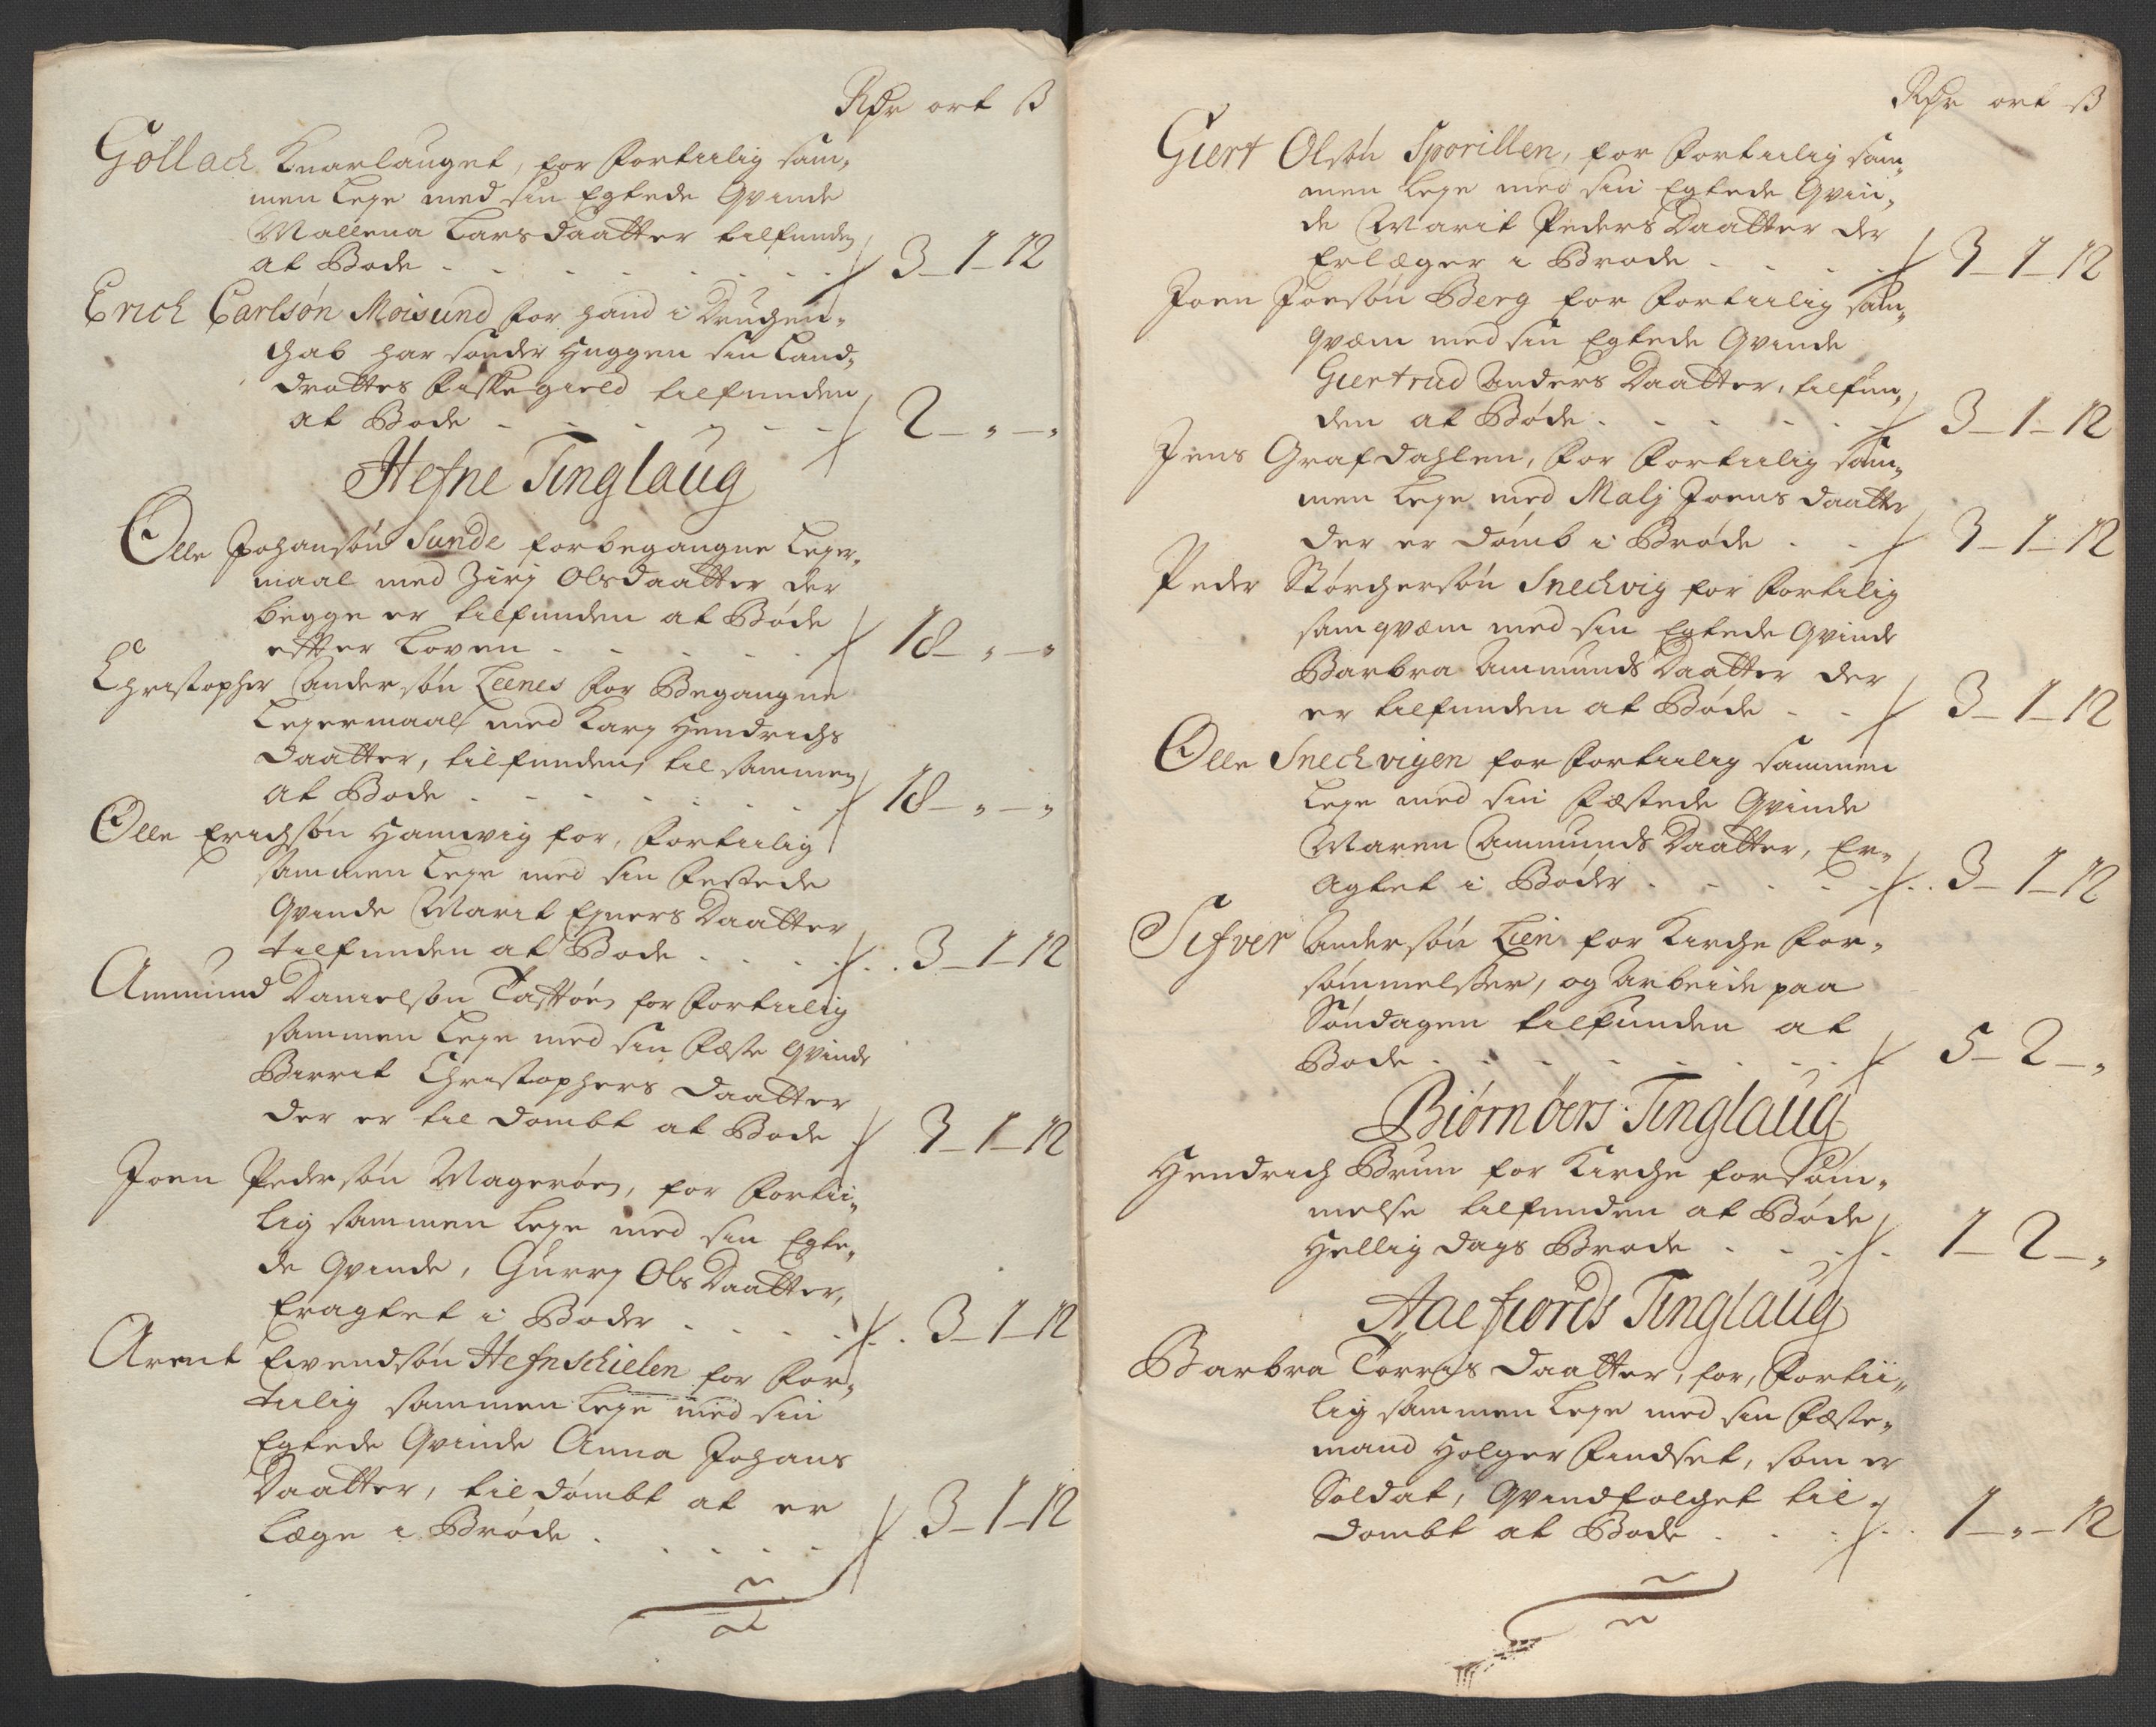 Rdr ort ß
Gollach Knarlauget, for fortiilig sam,
men leye med sin Egtede Qvinde
Mallena Larsdaatter tilfunden
at Bøde - - - - - - - 3 - 1 - 12
Erich Carlsøn Moisund for hand i Druchen,
schab har sønder huggen sin Land,
drottes fiskegield tilfunden
at Bøde - - - - - - 2 - „ - „
Hefne Tinglaug
Olle Johansøn Sunde forbegangne leyer,
maal med Zirj Olsdaatter der
begge er tilfunden at Bøde
efter Loven - - - - - - 18 - „ - „
Christopher Andersøn Leenes for Begangne
Leyermaal med Karj Hendrichs
daatter, tilfunden, til sammen
at Bøde - - - - - - - 18 - „ - „
Olle Erichsøn Hamvig for, fortiilig
sammen leye med sin festede
Qvinde Marit Ejners Daatter
tilfunden at Bøde - - - - 3 - 1 - 12
Ammund Danielsøn Tastøen for fortiilig
sammen leye med sin fæste Qvinde
Birrit Christophers daatter
der er til dømbt at Bøde 3 - 1 - 12
Joen Pedersøn Magerøen, for fortii,
lig sammen leye med sin Egte,
de Qvinde, Gurrj Ols Daatter,
Eragtet i Bøder - - - - 3 - 1 - 12
Arent Evendsøn Hefnschielen for for,
tiilig sammen leye med sin
Egtede Qvinde Anna Johans
Daatter, til dømbt at er
læge i Brøde - - - - - 3 - 1 - 12
Rdr ort ß
Giert Olsøn Sporillen, for fortiilig sam,
men leye med sin Egtede Qvin,
de Marit Peders Daatter der
Erlæger i Brøde - - - - 3 - 1 - 12
Joen Joensøn Berg for fortiilig sam,
qvæm med sin Egtede Qvinde
Giertrud Anders Daatter, tilfun,
den at Bøde - - - - - - 3 - 1 - 12
Jens Grafdahlen, for fortiilig sam,
men leye med Malj Joens daatter
der er dømb i Brøde - - 3 - 1 - 12
Peder Størchersøn Snechvig for fortilig
samqvæm med sin Egtede Qvinde
Barbra Ammunds Daatter der
er tilfunden at Bøde - - 3 - 1 - 12
Olle Snechvigen for fortiilig sammen
leye med sin fæstede Qvinde
Maren Ammunds Daatter, Er,
agtet i Bøder - - - - - 3 - 1 - 12
Sifver Andersøn Lien for Kirche for,
sømmelsser, og Arbeide paa
Søndagen tilfunden at
Bøde - - - - - - - - 5 - 2 - „
Biørnøers Tinglaug
Hendrich Brun for Kirche forsøm,
melse tilfunden at Bøde
Hellig dags Brøde - - - 1 - 2 - „
Aaefiords Tinglaug
Barbra Torris daatter, for, fortii,
lig sammen leye med sin fæste,
mand Holger findset, som er
Soldat, Qvindfolchet til,
dømbt at Bøde - - - - 1 - „ - 12